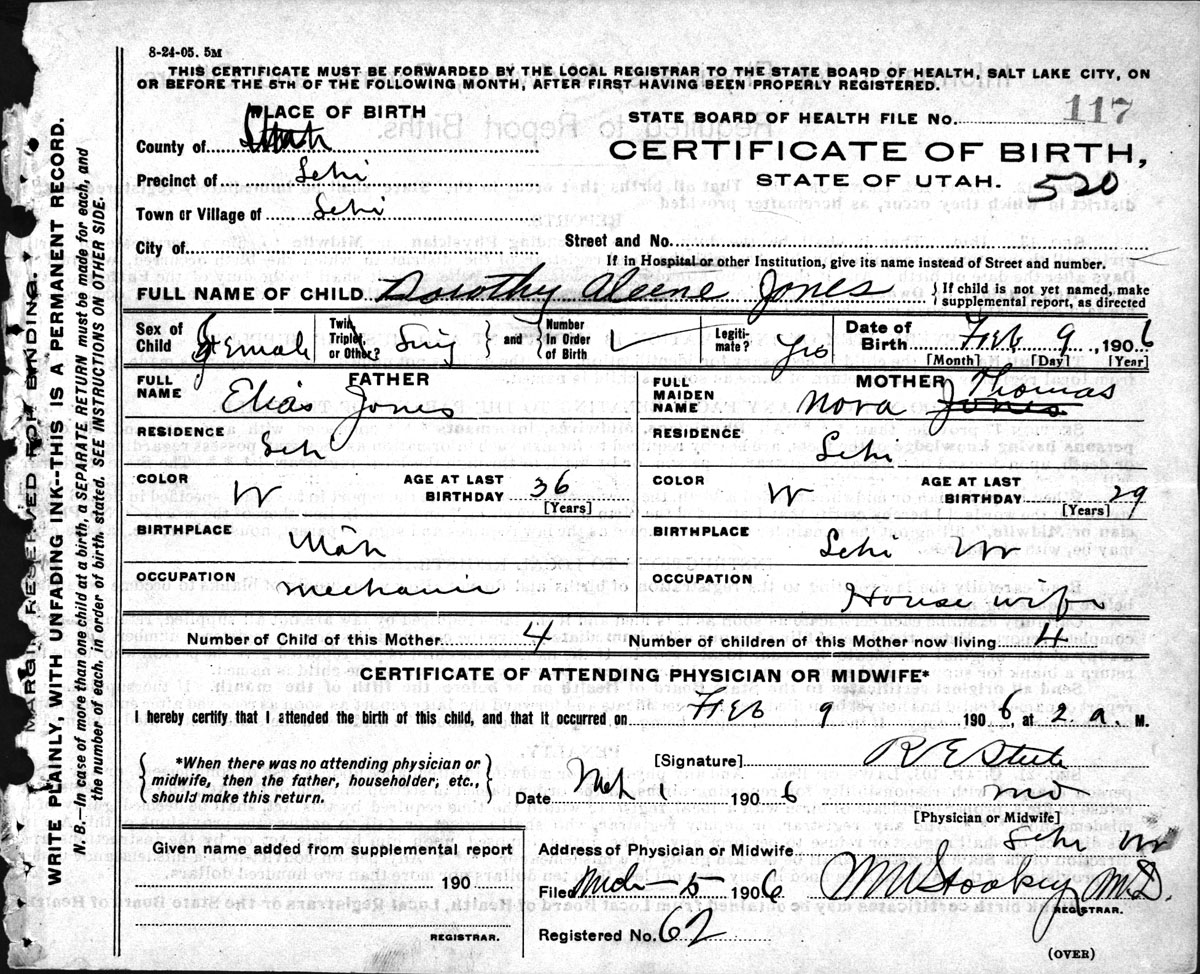 8-24-05. 5M
THIS CERTIFICATE MUST BE FORWARDED BY THE LOCAL REGISTRAR TO THE STATE BOARD OF HEALTH, SALT LAKE CITY, ON
OR BEFORE THE 5TH OF THE FOLLOWING MONTH, AFTER FIRST HAVING BEEN PROPERLY REGISTERED.
PLACE OF BIRTH
STATE BOARD OF HEALTH FILE No. 117
County of Utah
CERTIFICATE OF BIRTH,
Precinct of Lehi
STATE OF UTAH. 520
Town or Village of Lehi
City of
Street and No.
If in Hospital or other Institution, give its name instead of Street and number.
FULL NAME OF CHILD Dorothy Aleene Jones { If child is not yet named, make
supplemental report, as directed
Sex of Child Female Twin, Triplet, or Other? Sing } and { Number In Order of Birth 1 Legiti- mate? Yes Date of Birth Feb 9, 1906
[Month] [Day] [Year]
FATHER
FULL NAME Elias Jones
RESIDENCE Lehi
COLOR W AGE AT LAST BIRTHDAY 36
[Years]
BIRTHPLACE Utah
OCCUPATION Mechanic
MOTHER
FULL MAIDEN NAME Nora Jones Thomas
RESIDENCE Lehi
COLOR W AGE AT LAST BIRTHDAY 29
[Years]
BIRTHPLACE Lehi
OCCUPATION House wife
Number of Child of this Mother 4 Number of children of this Mother now living 4
CERTIFICATE OF ATTENDING PHYSICIAN OR MIDWIFE*
I hereby certify that I attended the birth of this child, and that it occurred on Feb 9 1906, at 2 a. M.
*When there was no attending physician or
midwife, then the father, householder, etc.,
should make this return.
[Signature] R E Steele
Date Mch 1 1906 MD
[Physician or Midwife]
Given name added from supplemental report
190
REGISTRAR.
Address of Physician or Midwife Lehi
Filed Mch-5-1906 M.D.
REGISTRAR.
Registered No. 62
(OVER)
MARGIN RESERVED FOR BINDING.
WRITE PLAINLY, WITH UNFADING INK--THIS IS A PERMANENT RECORD.
N. B.—In case of more than one child at a birth, a SEPARATE RETURN must be made for each, and
the number of each, in order of birth, stated. SEE INSTRUCTIONS ON OTHER SIDE.